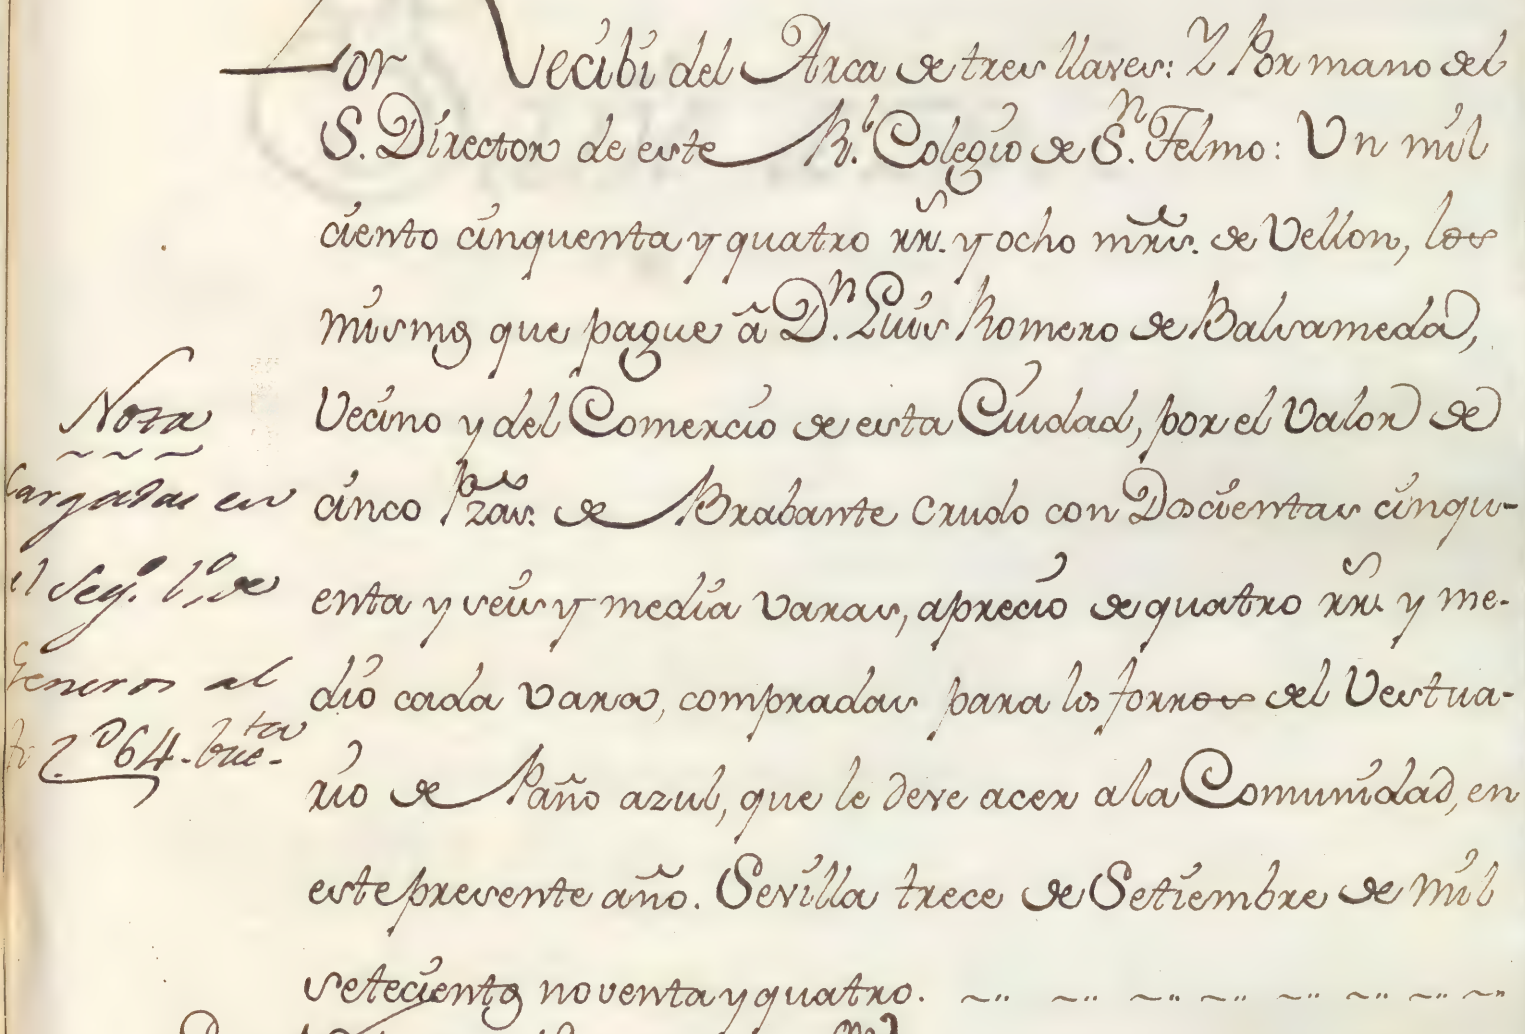 Recibi del Arca de tres llaves: Y Por mano del
S. Director de este Rl. Colegio de Sn. Telmo: Un mil
ciento cinquenta y quatro rrs. y ocho mrs. de Vellon, los
mismos que pague â Dn. Luis Romero de Balsameda,
Vecino y del Comercio de esta Ciudad, por el Valor de
cinco Pzas. de Brabante crudo con Doscientas cinqu-
enta y seis y media varas, aprecio de quatro rrs. y me-
dio cada vara, compradas para los forros del Vestua-
rio de Paño azul, que le deve acer ala Comunidad, en
este presente año. Sevilla trece de Setiembre de mil
setecientos noventa y quatro.
Nota
Cargadas en
el Seqo. 1o. de
Generos al
fo 2o 64. buelta